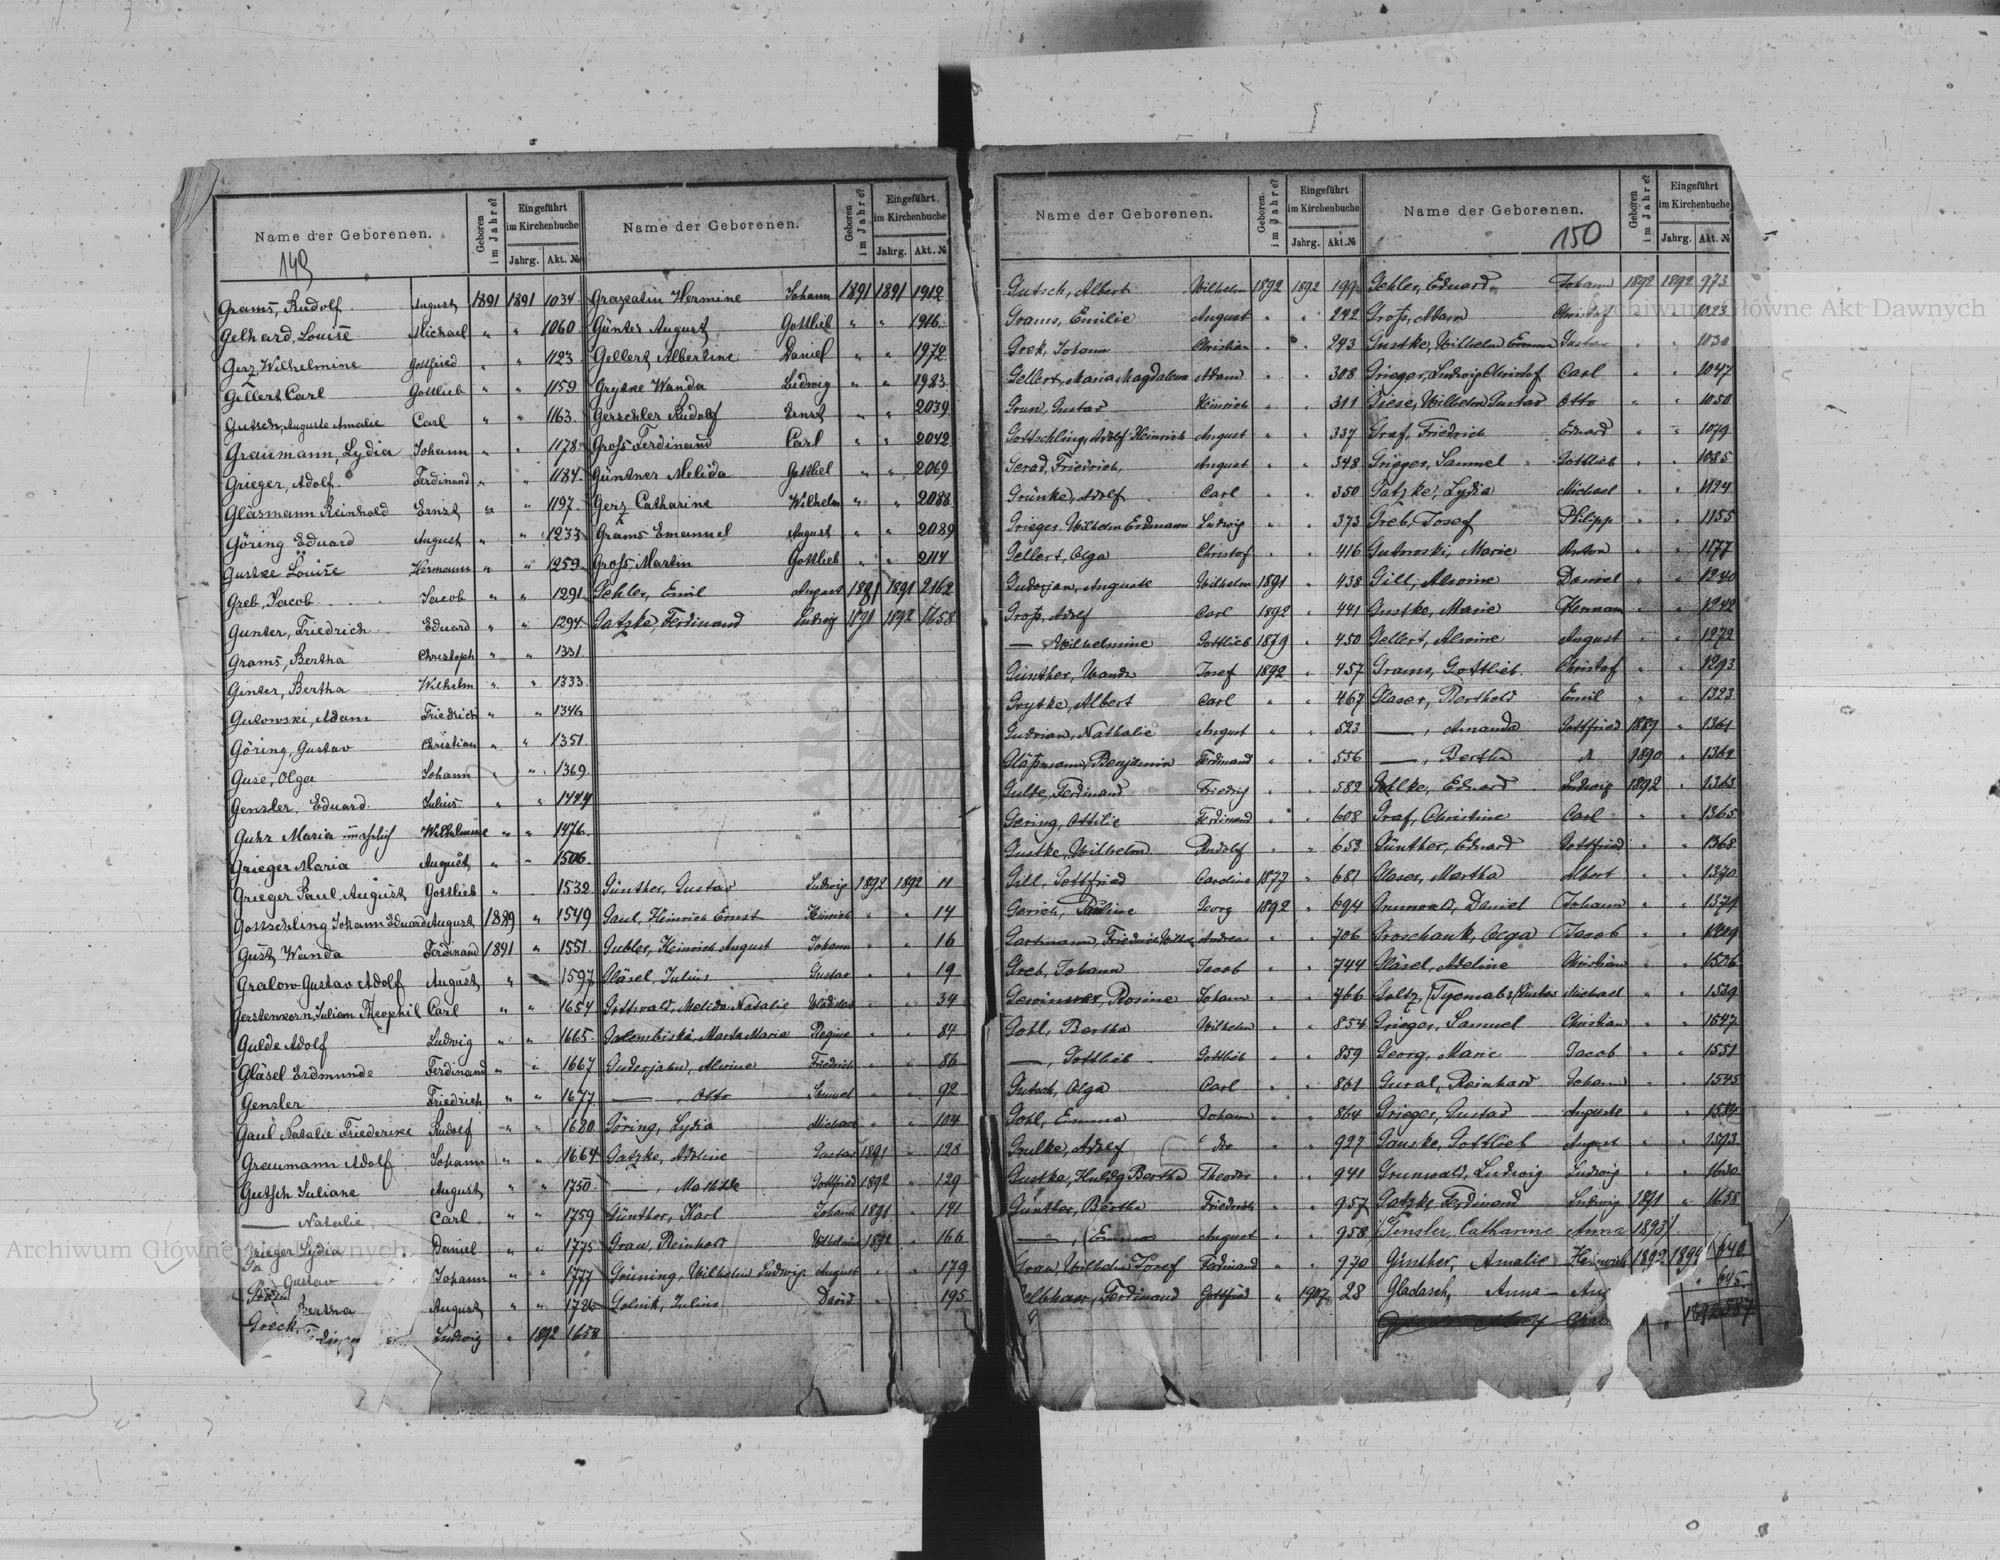 Name der Geborenen.
Geboren im Jahre?
Eingeführt im Kirchenbuche
Jahrg. Akt. №
149
Grams, Rudolf August 1891 1891 1034
Gelhard, Louise Michael " " 1060
Gerz Wilhelmine Gottfried " " 1123
Gellert Carl Gottlieb " " 1159
Gutsch, Auguste Amalie Carl " " 1163
Graumann, Lydia Johann " " 1178
Grieger, Adolf Ferdinand " " 1184
Gläsmann Reinhold Ernst " " 1197
Göring Eduard August " " 1233
Gustke Louise Hermann " " 1259
Greb, Jacob Jacob " " 1291
Gunter, Friedrich Eduard " " 1294
Grams, Bertha Christoph " " 1331
Ginter, Bertha Wilhelm " " 1333
Gukowski, Adam Friedrich " " 1346
Göring, Gustav Christian " " 1351
Guse, Olga Johann " " 1369
Gensler, Eduard Julius " " 1444
Guhr Maria unehelich Wilhelmine " " 1476
Grieger Maria August " " 1506
Grieger Paul August Gottlieb " 1532
Gottschling Johann Eduard August 1889 " 1549
Gust Wanda Ferdinand 1891 " 1551
Gralow Gustav Adolf August " " 1597
Gerstenkorn, Julian Theophil Carl " " 1654
Gulde Adolf Ludwig " " 1665
Gläsel Erdmunde Ferdinand " " 1667
Gensler Friedrich " " 1677
Gaul Natalie Friederike Rudolf " " 1680
Graumann Adolf Johann " " 1664
Gutsch Juliane August " " 1750
— Natalie Carl " " 1759
Grieger Lydia Daniel " " 1775
Gustav Johann " " 1777
Bertha August " " 1786
Greck, Ludwig " 1892 1658
Name der Geborenen.
Geboren im Jahre?
Eingeführt im Kirchenbuche
Jahrg. Akt. №
Grapatin Hermine Johann 1891 1891 1912
Günter August Gottlieb " " 1916
Gellert Albertine Daniel " " 1972
Grytke Wanda Ludwig " " 1983
Gerschler Rudolf Ernst " " 2039
Gross Ferdinand Carl " " 2042
Güntner Melida Gottlieb " " 2069
Gerz Catharine Wilhelm " " 2088
Grams Emanuel August " " 2089
Gross Martin Gottlieb " " 2114
Gehler, Emil August 1891 1891 2162
Gatzke, Ferdinand Ludwig 1891 1892 1658
Günther, Gustav Ludwig 1892 1892 11
Gaul, Heinrich Ernst Heinrich " " 14
Gubler, Heinrich August Johann " " 16
Gläsel, Julius Gustav " " 19
Gottwald, Melida Natalie Wladislaw " " 34
Golembiski, Marta Maria Regine " " 84
Guderjahn, Alwine Friedrich " " 86
— , Otto Samuel " " 92
Göring, Lydia Michael " " 104
Gatzke, Adoline Gustav 1891 " 128
— , Mathilde Gottfried 1892 " 129
Günther, Karl Johann 1891 " 141
Grau, Reinhold Wilhelmine 1892 " 166
Grüning, Wilhelm Ludwig August " " 179
Golnik, Julius David " " 195
Name der Geborenen.
Geboren im Jahre?
Eingeführt im Kirchenbuche
Jahrg. Akt. №
Gutsch, Albert Wilhelm 1892 1892 199
Grams, Emilie August " " 242
Grek, Johann Christian " " 293
Gellert, Maria Magdalena Adam " " 308
Grun, Gustav Heinrich " " 311
Gottschling, Adolf Heinrich August " " 337
Gerad, Friedrich, August " " 348
Grünke, Adolf Carl " " 350
Grieger, Wilhelm Erdmann Ludwig " " 373
Gellert, Olga Christof " " 416
Guderjan, Auguste Wilhelm 1891 " 438
Gross, Adolf Carl 1892 " 441
— Wilhelmine Gottlieb 1879 " 450
Günther, Wanda Josef 1892 " 457
Grytke, Albert Carl " " 467
Gudrian, Nathalie August " " 523
Gläßmann, Benjamin Ferdinand " " 556
Gulde, Ferdinand Friedrich " " 582
Gering, Ottilie Ferdinand " " 608
Gustke, Wilhelm Rudolf " " 653
Gill, Gottfried Caroline 1877 " 681
Gerich, Pauline Georg 1892 " 694
Gartmann, Friedrich Wilh. Andreas " " 706
Greb, Johann Jacob " " 744
Gewinner, Rosine Johann " " 766
Gohl, Bertha Wilhelm " " 854
— , Gottlieb Gottlieb " " 859
Gutsch, Olga Carl " " 861
Gohl, Emma Johann " " 864
Grulke, Adolf do " " 927
Gustke, Hulda Bertha Theodor " " 941
Günther, Bertha Friedrich " " 957
— , Emma August " " 958
Grau, Wilhelm Josef Ferdinand " " 970
Gelbhaar, Ferdinand Gottfried " 1907 28
Name der Geborenen.
150
Geboren im Jahre?
Eingeführt im Kirchenbuche
Jahrg. Akt. №
Gehler, Eduard Johann 1892 1892 973
Groß, Adam Christof " " 1023
Gustke, Wilhelm Emma Gustav " " 1030
Grieger, Ludwig Christof Carl " " 1047
Giese, Wilhelm Gustav Otto " " 1050
Graf, Friedrich Eduard " " 1079
Grieger, Samuel Gottlieb " " 1085
Gatzke, Lydia Michael " " 1124
Greb, Josef Philipp " " 1155
Gutowski, Marie Anton " " 1177
Gill, Alwine Daniel " " 1240
Gustke, Marie Herman " " 1242
Gellert, Alwine August " " 1272
Grams, Gottlieb Christof " " 1293
Glaser, Berthold Emil " " 1323
— , Amanda Gottfried 1889 " 1361
— , Bertha " 1890 " 1362
Gohlke, Eduard Ludwig 1892 " 1363
Graf, Christine Carl " " 1365
Günther, Eduard Gottfried " " 1368
Glaser, Martha Albert " " 1370
Grunwald, Daniel Johann " " 1379
Groschank, Olga Jacob " "
Gläsel, Adeline Christian " " 1506
Goltz, Gustav Michael " " 1539
Grieger, Samuel Christian " " 1547
Georg, Marie Jacob " " 1551
Gural, Reinhard Johann " "
Grieger, Gustav Auguste " "
Gauske, Gottlieb August " " 1593
Grunwald, Ludwig Ludwig " " 1630
Gatzke, Ferdinand Ludwig 1891 " 1658
Gensler, Catharine Anna 1893
Günther, Amalie Heinrich 1892 1894 640
Gladasch, Anna " 645
1892 587
Archiwum Główne Akt Dawnych
Archiwum Główne Akt Dawnych